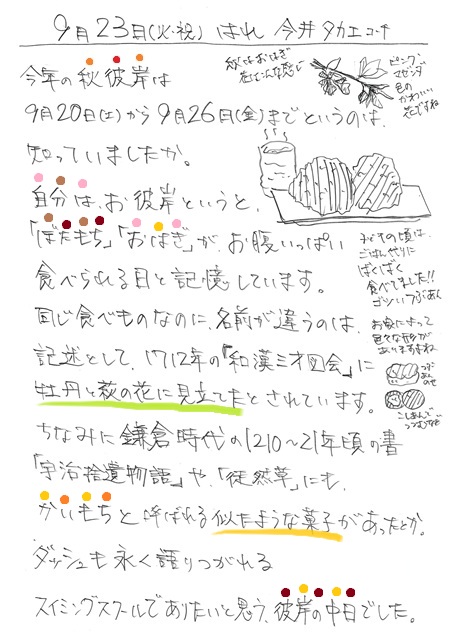 9月23日(火・祝) はれ 今井タカエコーチ
秋はおはぎ
花はこんな感じ
ピンク〜
マゼンダ
色の
かわいい
花ですね
今年の秋彼岸は
9月20日(土)から9月26日(金)までというのは、
知っていましたか。
自分は、お彼岸というと、
「ぼたもち」「おはぎ」が、お腹いっぱい
食べられる日と記憶しています。
同じ食べものなのに、名前が違うのは、
記述として、1712年の「和漢三才図会」に
牡丹と萩の花に見立てたとされています。
ちなみに鎌倉時代の1210〜21年頃の書
「宇治拾遺物語」や、「徒然草」にも、
かいもちと呼ばれる似たような菓子があったとか。
ダッシュも永く語りつがれる
スイミングスクールでありたいと思う、彼岸の中日でした。
子どもの頃は、
ごはん代りに
ばくばく
食べてました!!
ゴツいつぶあん
お家によって
色々な形が
ありますよね
つぶ
あん
のせ
こしあんで
つつむなど